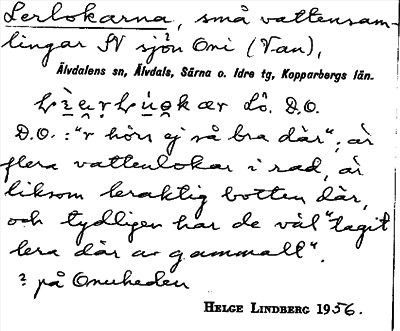 Lerlokarna, små vattensam-
lingar N sjön Oni (Van),
Älvdalens sn, Älvdals, Särna o. Idre tg, Kopparbergs län.
Lô. D.O.
D.O.: "r hörs ej så bra där"; är
flera vattenlokar i rad, är
liksom leraktig botten där,
och tydligen har de väl "tagit
lera där av gammalt".
? på Onuheden
HELGE LINDBERG 1956.